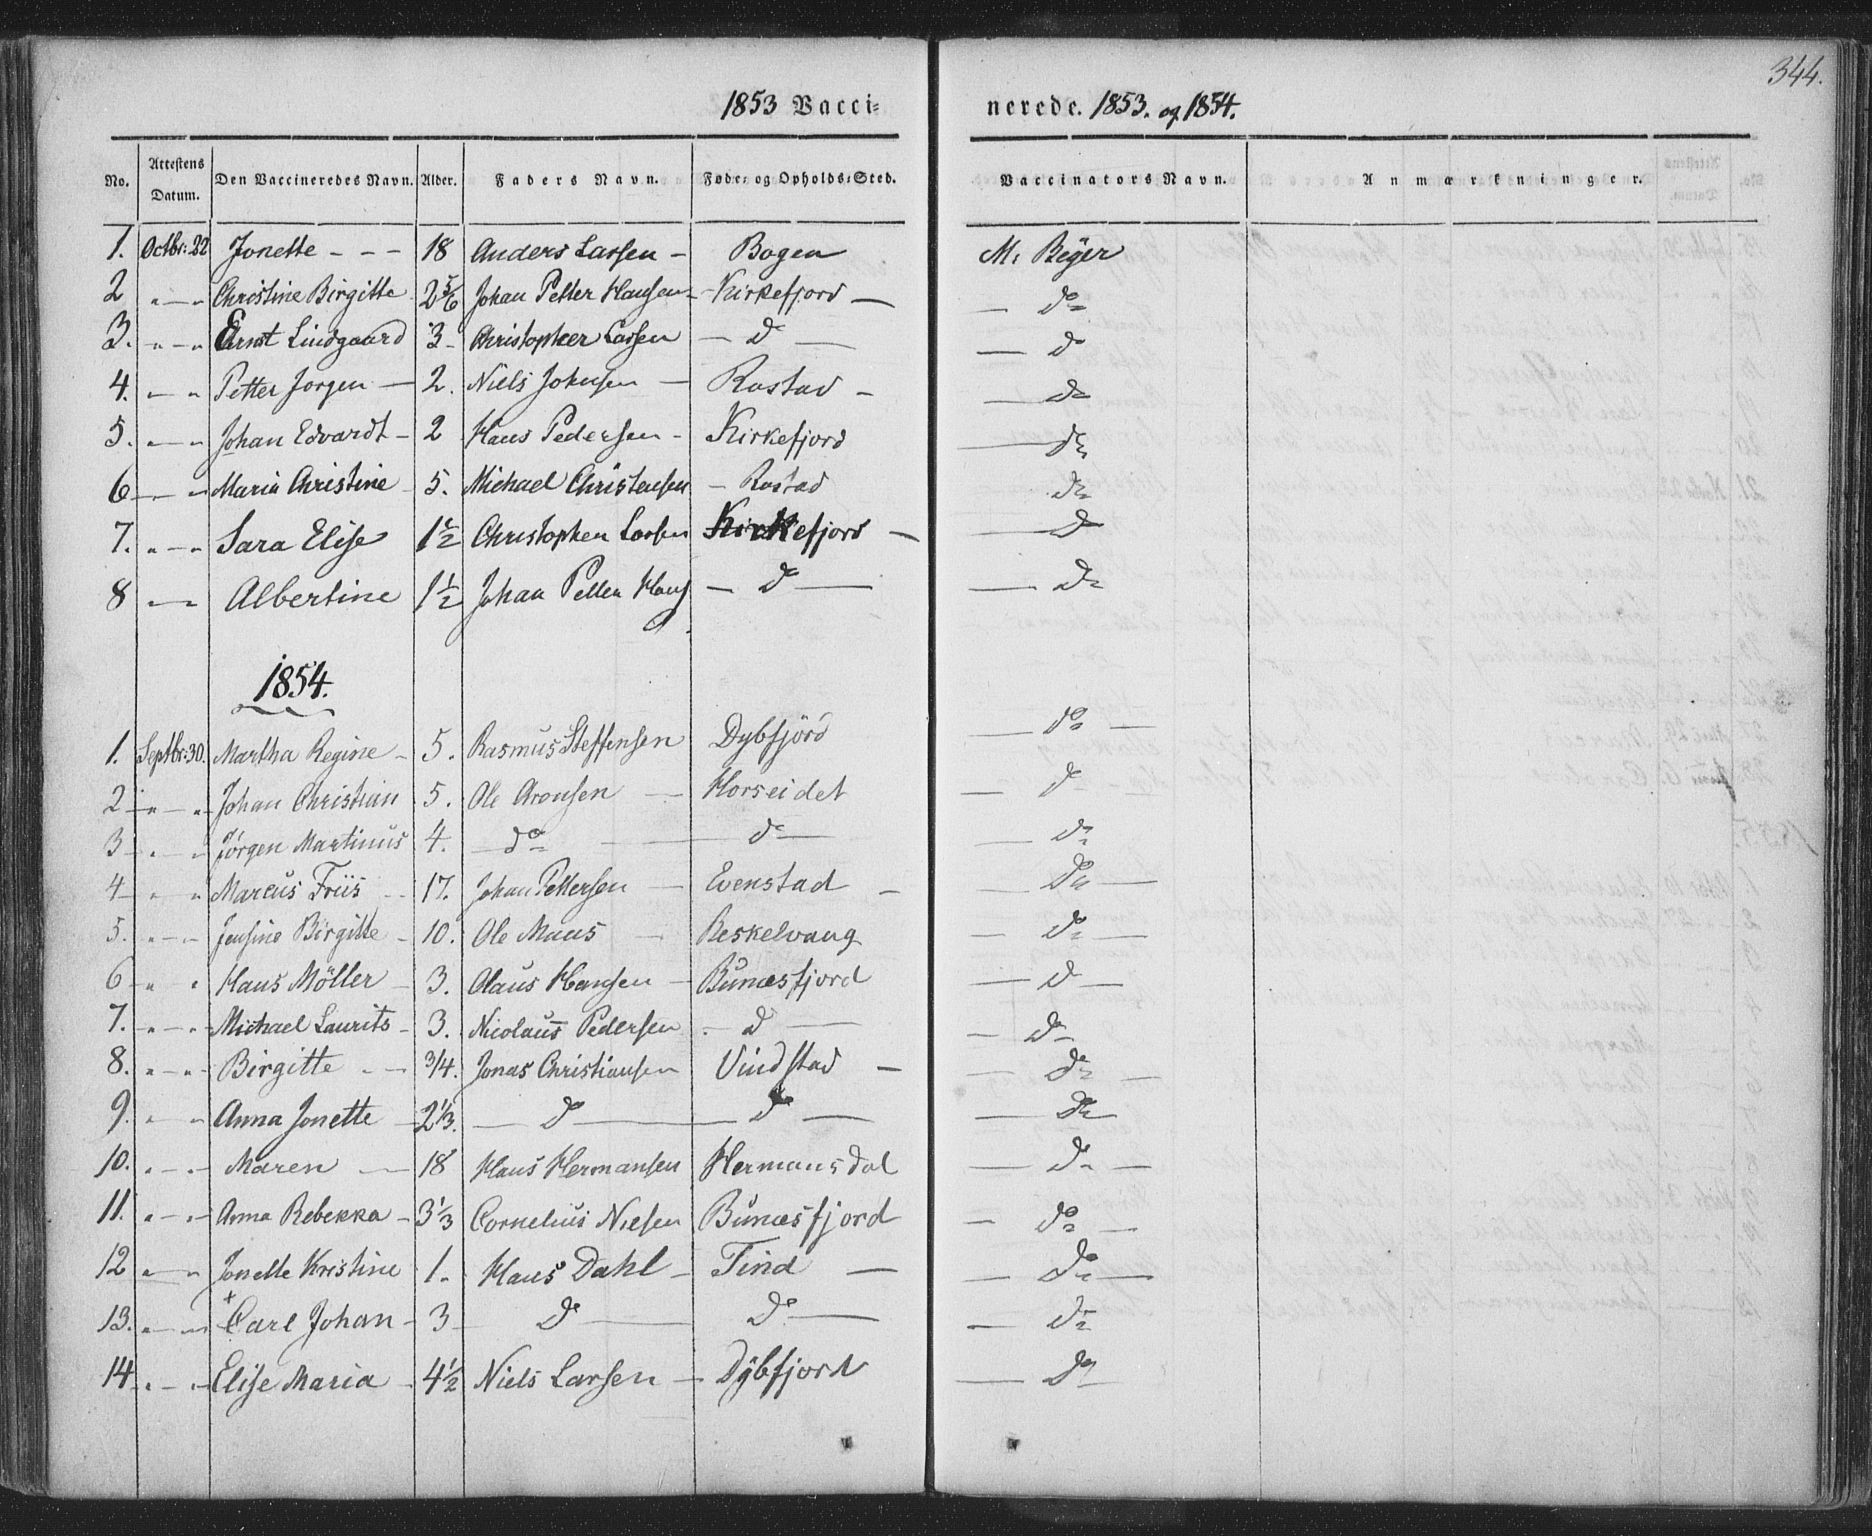 344.
1853 Vacci= nerede. 1853. og 1854.
No. Attestens Datum. Den Vaccineredes Navn. Alder. Faders Navn. Føde= og Opholds=Sted. Vaccinators Navn. Anmærkninger.
1. Octbr: 22 Jonette - - - 18 Anders Larsen - Bogen M. Beÿer
2 " — " Christine Birgitte 2 5/6 Johan Petter Hansen - Kirkefjord — — do
3. " — " Ernst Lindgaard 3 - Christopher Larsen — do — — do
4. " — " Petter Jørgen — 2. Niels Johnsen — Rostad — — do
5. " — " Johan Edvardt - 2 Hans Pedersen - Kirkefjord — do
6 " — " Maria Christine 5. Michael Christensen - Rostad do
7. " — " Sara Elise 1 1/2 Christopher Larsen Kirkefjord — — do
8 " — " Albertine 1 1/2 Johan Petter Hans — do — — do
1854.
1. Septbr: 30. Martha Regine - 5. Rasmus Steffensen Dybfjörd — do —
2 " — " Johan Christian 5. Ole Aronsen — Horseidet — do —
3 " — " Jørgen Martinus 4. — do — — do — — do
4 " — " Marcus Friis - - 17. Johan Pettersen — Evenstad — — do —
5. " — " Jensine Birgitte - 10. Ole Maas — Reskelvang — do —
6 " " Hans Möller - 3. Olaus Hansen - Bunæsfjord — do —
7. " — " Michael Laurits - 3. Nicolaus Pedersen - do — — do —
8. " — " Birgitte - — 3/4. Jonas Christiansen Vindstad — — do —
9. " — " Anna Jonette - 2 1/3. — do — — do — — do —
10. " — " Maren — 18 Hans Hermansen Hermansdal — do —
11. " — " Anna Rebekka - 3 1/3 Cornelius Nielsen Bunæsfjord — do —
12 " — " Jonette Kristine 1. Hans Dahl - Tind — — do —
13. " — " × Carl Johan - 3 — do — — do — — do
14 " — " Elise Maria - 4 1/2 Niels Larsen — Dÿbfjord — do —